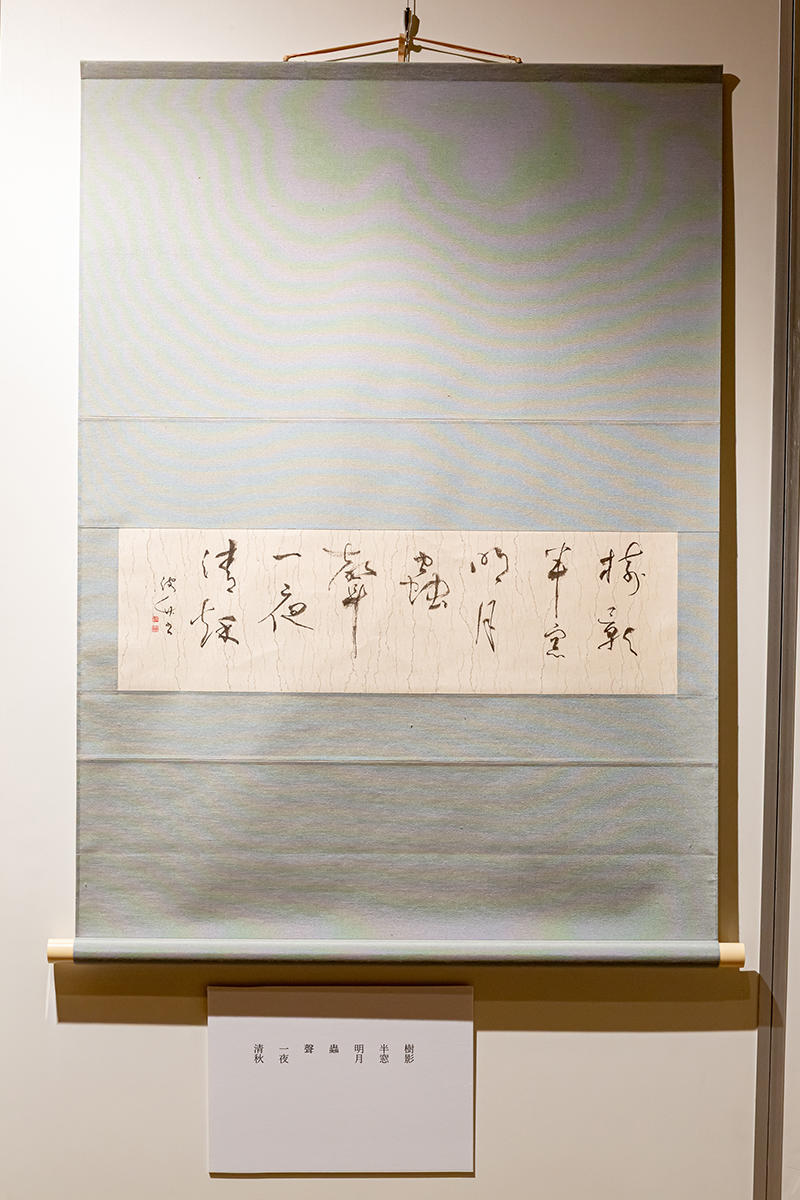 樹影
半窓
明月
蟲
聲
一夜
清秌
樹影
半窓
明月
蟲
聲
一夜
清秋